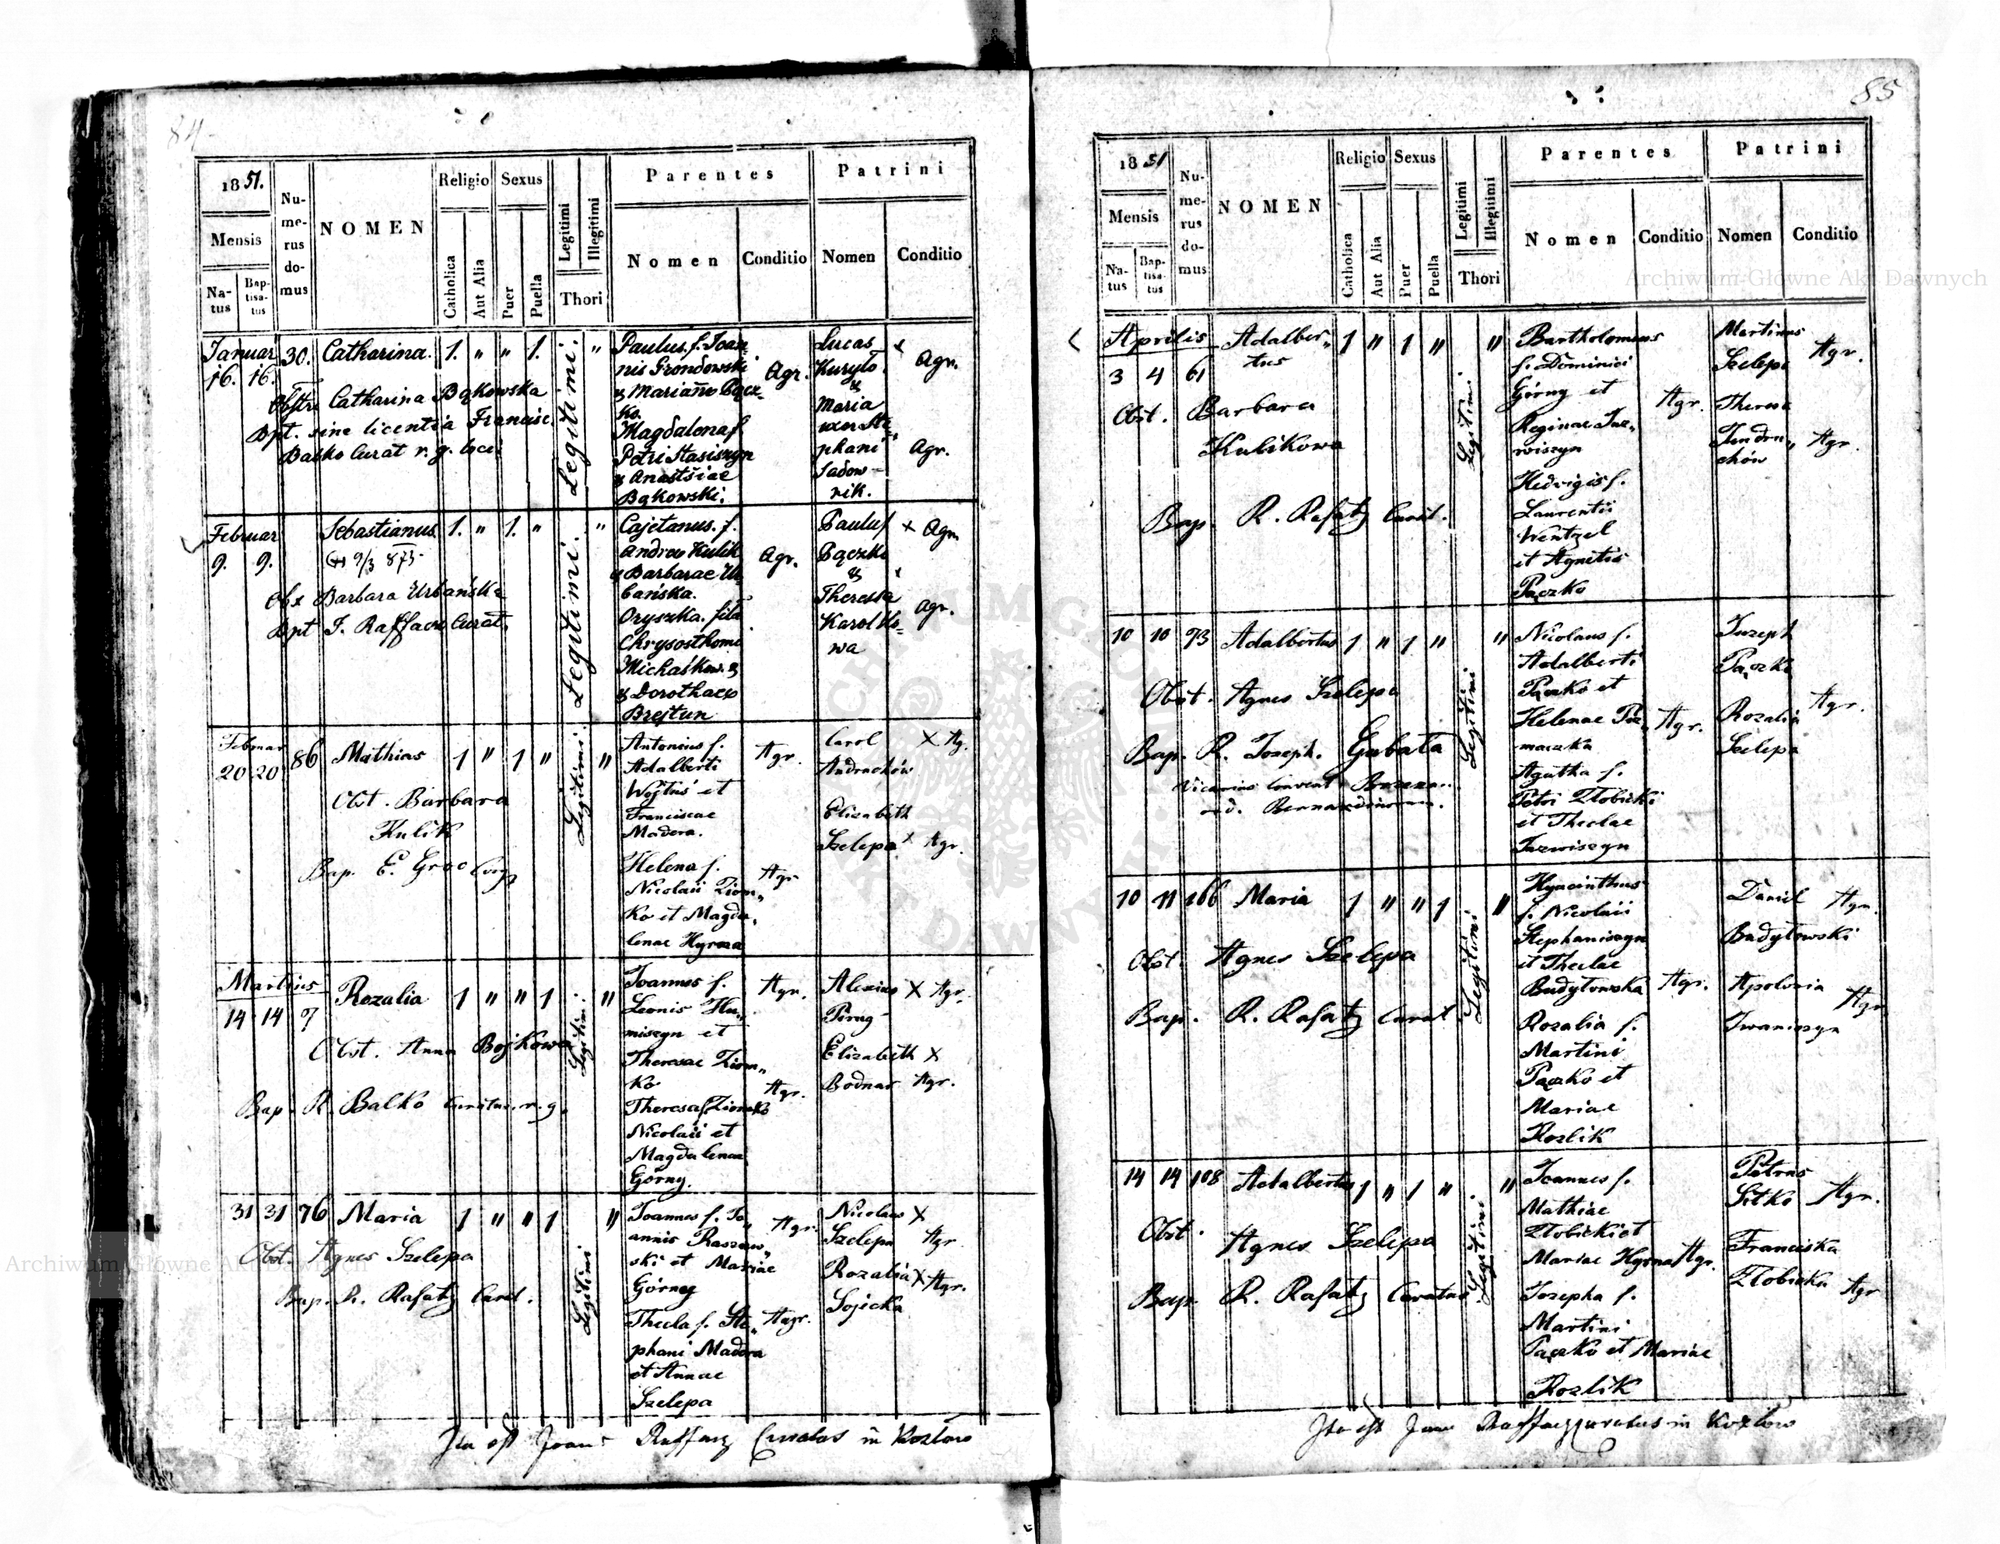 84
1851.
Mensis
Na-
tus
Bap-
tisa-
tus
Nu-
me-
rus
do-
mus
NOMEN
Religio
Catholica
Aut Alia
Sexus
Puer
Puella
Legitimi
Illegitimi
Thori
Parentes
Nomen
Conditio
Patrini
Nomen
Conditio
Januar
16. 16. 30. Catharina. 1. " " 1. Legitimi. "
Obstr Catharina Bąkowska
Bpt. sine licentia Francisc.
Balko Curat r. g. loci
Paulus f. Joan-
nis Grondowski
& Marianno Pącz-
ko.
Magdalena f.
Petri Stasiszyn
& Anastsiae
Bąkowski.
Agr.
Lucas
Kuryło
&
Maria
uxor Ste-
phani
Sadow-
nik.
x Agr.
Agr.
Februar
9. 9. Sebastianus 1. " 1. " Legitimi. "
9/3 873
Obs Barbara Urbańska
Bpt J. Raffacz Curat.
Cajetanus. f.
Andreae Kulik
& Barbarae Ur-
bańska.
Oryszka. filia
Chrysosthomi
& Dorothaea
Brejtun
Agr.
Paulus
Pączko
&
Theressa
Karolko-
wa
x Agr.
x Agr.
Februar
20 20 86 Mathias 1 " 1 " Legitimi "
Obst. Barbara
Kulik
Bap. E. Groo Coop
Antonius f.
Adalberti
Wojtus et
Franciscae
Madera.
Helena f.
Nicolaii Ziom-
ko et Magda-
lenae Hyrna
Agr.
Agr
Carol
Andruchów
Elizabeth
Szelepa
X Ag.
x Agr.
Martius
14 14 7 Rozalia 1 " " 1 Legitimi. "
Obst. Anna Bojkowa
Bap. R. Balko Curatus r. g.
Joannes f.
Leonis Hu-
miszyn et
Theresae Ziom-
ko
Theresa f. Ziomko
Nicolaii et
Magdalenae
Górny.
Agr.
Agr.
Alexius
Pirug
Elizabeth
Bodnar
X Agr.
X
Agr.
31 31 76 Maria 1 " " 1 Legitimi "
Obst. Agnes Szelepa
Bap. R. Rafacz Curat.
Joannes f. Jo-
annis Raszew-
ski et Mariae
Górney
Thecla f. Ste-
phani Madera
et Annae
Szelepa
Agr.
Aagr.
Nicolaus X
Szelepa Agr
Rozalia X Agr.
Sojicka
Ita est Joan Raffacz Curatus in Kozłow
85
1851
Mensis
Na-
tus
Bap-
tisa-
tus
Nu-
me-
rus
do-
mus
NOMEN
Religio
Catholica
Aut Alia
Sexus
Puer
Puella
Legitimi
Illegitimi
Thori
Parentes
Nomen
Conditio
Patrini
Nomen
Conditio
Aprilis
3 4 61 Adalber-
tus 1 " 1 " Legitimi "
Obst. Barbara
Kulikowa
Bap. R. Rafacz Curat.
Bartholomeus
f. Dominici
Górny et
Reginae Jaz-
wiszyn
Hedvigis f.
Laurentii
Wentzel
et Agnetis
Pączko
Agr.
Martinus
Szelepa
Theresa
Jendru-
chów
Agr.
Agr.
10 10 93 Adalbertus 1 " 1 " Legitimi "
Obst. Agnes Szelepa
Bap. R. Joseph. Gubata
Vicarius Convent
ord. Bernardinorum.
Nicolaus f.
Adalberti
Pączko et
Helenae
Agatha f.
Petri Złobicki
et Theclae
Jazwiszyn
Agr.
Jozeph
Pączko
Rozalia
Szelepa
Agr.
10 11 166 Maria 1 " " 1 Legitimi "
Obst. Agnes Szelepa
Bap. R. Rafacz Curat
Hyacinthus
f. Nicolaii
Stephaniszyn
et Theclae
Budytowska
Rozalia f.
Martini
Pączko et
Mariae
Kozlik
Agr.
Daniel
Budytowski
Apolonia
Iwaniszyn
Agr.
Agr
14 14 108 Adalbertus 1 " 1 " Legitimi. "
Obst.
Agnes Szelepa
Bap. R. Rafacz Curatus
Joannes f.
Mathiae
Złobicki et
Mariae Hyrna
Jozepha f.
Martini
Pączko et Mariae
Kozlik
Agr.
Petrus
Sitko
Franciska
Złobicka
Agr.
Agr
Ita est Joan Raffacz Curatus in Kozłow
Archiwum Główne Akt Dawnych
Archiwum Główne Akt Dawnych
ARCHIWUM GŁÓWNE AKT DAWNYCH